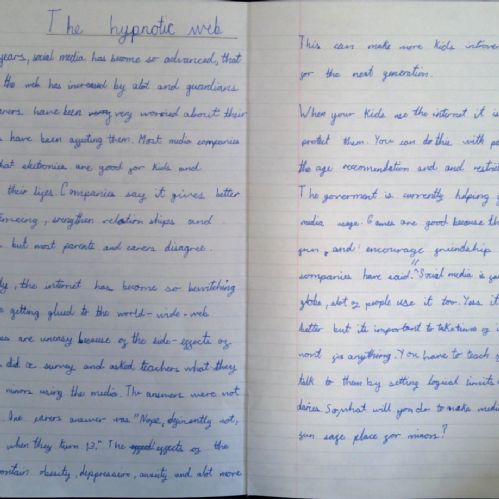 The hypnotic web
years, social media has become so advanced, that
the web has increased by alot and guardians
have been very worried about their
have been affecting them. Most media companies
that electronics are good for kids and
their lifes. Companies say it gives better
strengthen relation ships and
but most parents and carers disagree.
the internet has become so bewitching
getting glued to the world-wide-web
are uneasy because of the side-effects of
did a survey and asked teachers what they
minors using the media. The answers were not
One carers answer was "Nope, definantly not,
when they turn 13." The effects of the
contain obesity, deppression, anxiety and alot more
This can make more kids
for the next generation.
When your kids use the internet it is
protect them. You can do this with
the age recomendation and and
The goverment is currently helping
media usage. Games are good because
fun, and encourage friendship
companies have said. "Social media is
globe, alot of people use it too. Yes it
better but its important to take time of
for anything. You have to teach
talk to them by setting logical limits
So, what will you do to make media
fun safe place for minors?